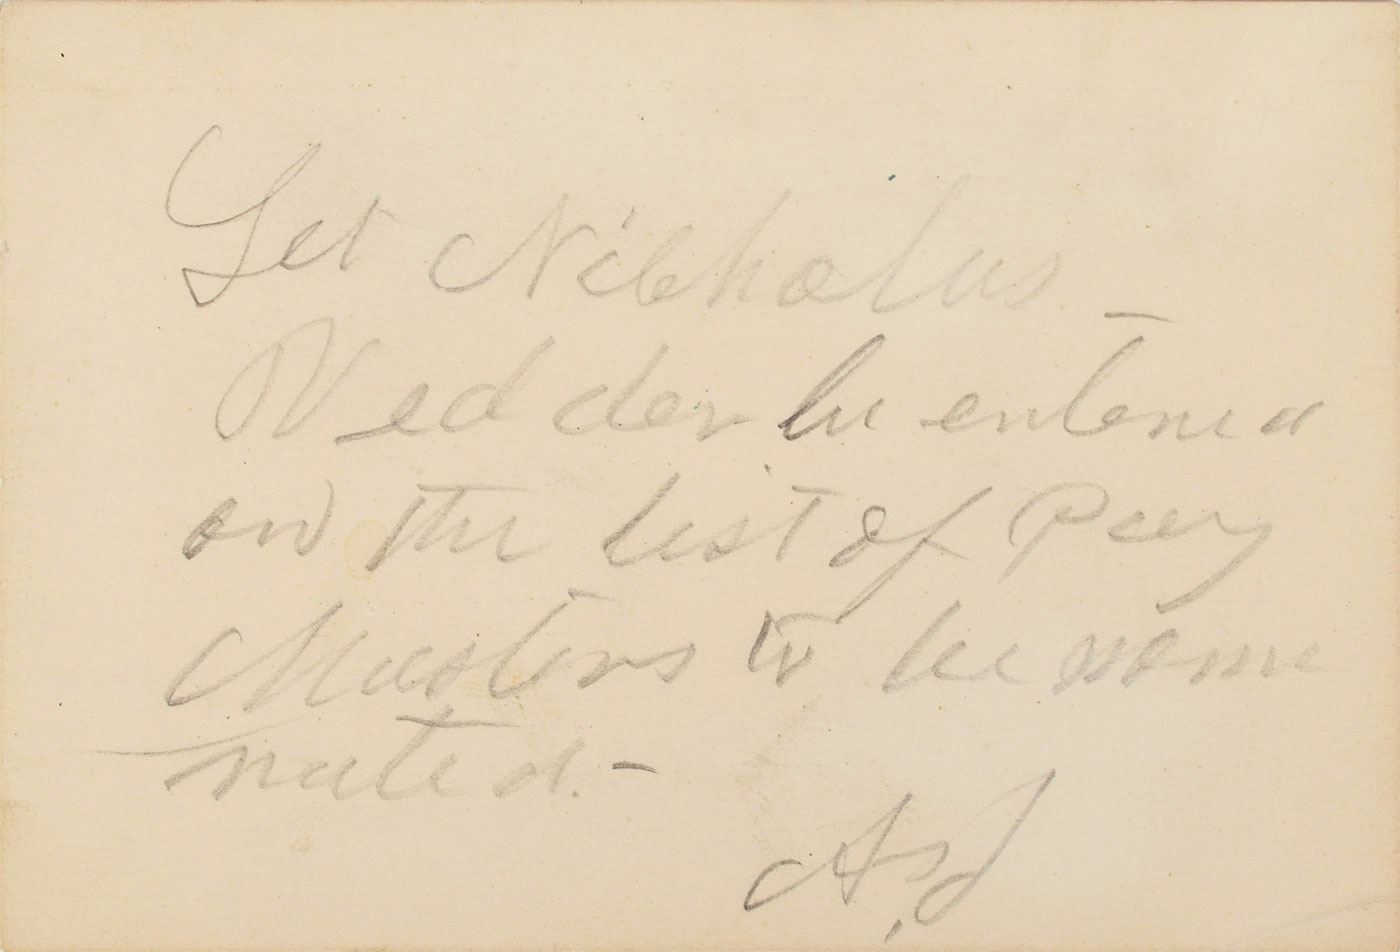 Let Nicholus
Vedder be entered
on the list of Pay
Masters to be nomi
nated. —
A. J